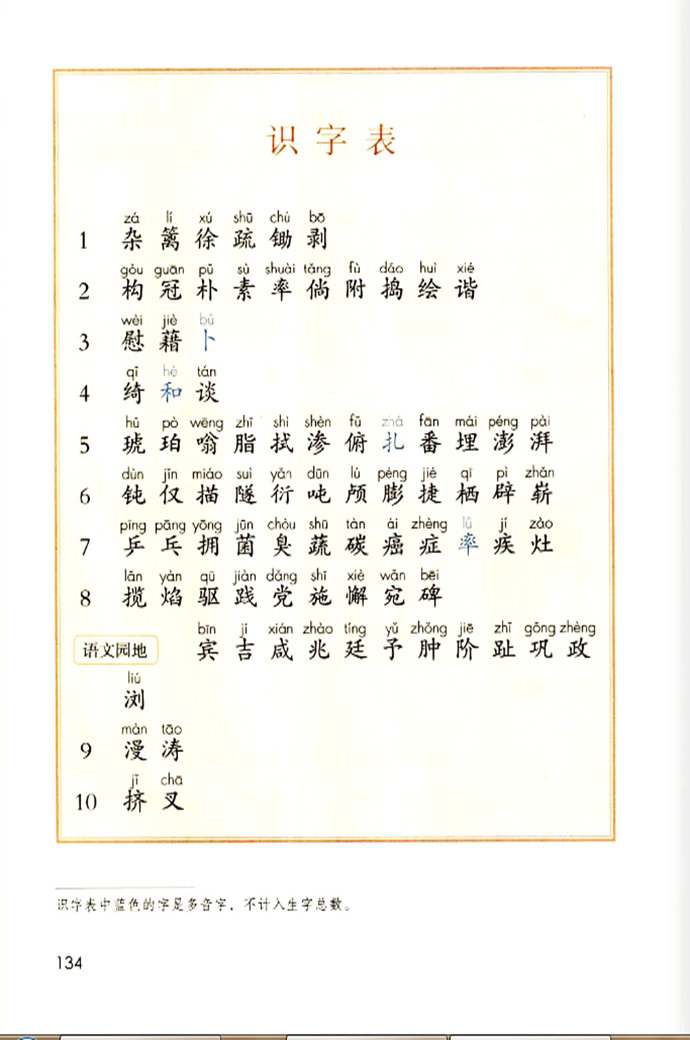 识字表
zá lí xú shū chú bō
1 杂 篱 徐 疏 锄 剥
gòu guān pǔ sù shuài tǎng fù dǎo huì xié
2 构 冠 朴 素 率 倘 附 捣 绘 谐
wèi jiè bǔ
3 慰 藉 卜
qǐ hè tán
4 绮 和 谈
hǔ pò wēng zhī shì shèn fǔ zhá fān mái péng pài
5 琥 珀 嗡 脂 拭 渗 俯 扎 番 埋 澎 湃
dùn jǐn miáo suì yǎn dūn lú péng jié qī pì zhǎn
6 钝 仅 描 隧 衍 吨 颅 膨 捷 栖 辟 崭
pīng pāng yōng jūn chòu shū tàn ái zhèng lǜ jí zào
7 乒 乓 拥 菌 臭 蔬 碳 癌 症 率 疾 灶
lǎn yàn qū jiàn dǎng shī xiè wǎn bēi
8 揽 焰 驱 践 党 施 懈 宛 碑
bīn jí xián zhào tíng yǔ zhǒng jiē zhǐ gǒng zhèng
语文园地 宾 吉 咸 兆 廷 予 肿 阶 趾 巩 政
liú
浏
màn tāo
9 漫 涛
jǐ chā
10 挤 叉
识字表中蓝色的字是多音字，不计入生字总数。
134